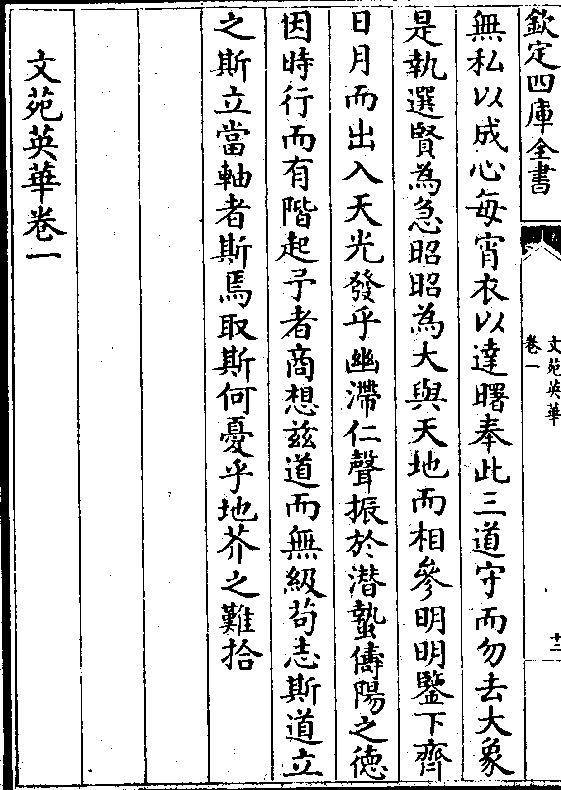 欽定四庫全書
文苑英華
卷一
十三
無私以成心每宵衣以達曙奉此三道守而勿去大象
是執選賢為急昭昭為大與天地而相參明明鑒下齊
日月而出入天光發乎幽滯仁聲振於潛蟄儔陽之德
因時行而有階起予者商想茲道而無級苟志斯道立
之斯立當軸者斯焉取斯何憂乎地芥之難拾
文苑英華卷一